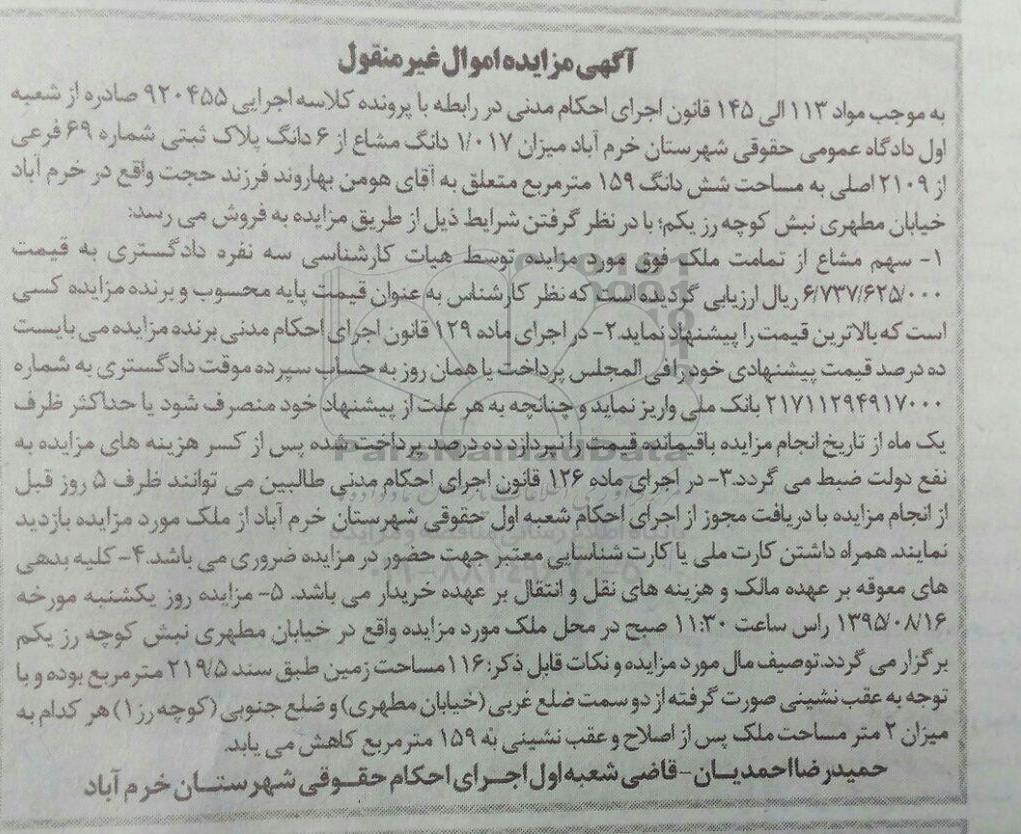 آگهی مزایده اموال غیر منقول
به موجب مواد ۱۱۳ الی ۱۴۵ قانون اجرای احکام مدنی در رابطه با پرونده کلاسه اجرایی ۹۲۰۴۵۵ صادره از شعبه
اول دادگاه عمومی حقوقی شهرستان خرم آباد میزان ۱/۰۱۷ دانگ مشاع از ۶ دانگ پلاک ثبتی شماره ۶۹ فرعی
از ۲۱۰۹ اصلی به مساحت شش دانگ ۱۵۹ مترمربع متعلق به آقای هومن بهاروند فرزند حجت واقع در خرم آباد
خیابان مطهری نبش کوچه رز یکم؛ با در نظر گرفتن شرایط ذیل از طریق مزایده به فروش می رسد:
۱- سهم مشاع از تمامت ملک فوق مورد مزایده توسط هیات کارشناسی سه نفره دادگستری به قیمت
۶/۷۳۷/۶۲۵/۰۰۰ ریال ارزیابی گردیده است که نظر کارشناس به عنوان قیمت پایه محسوب و برنده مزایده کسی
است که بالاترین قیمت را پیشنهاد نماید.۲- در اجرای ماده ۱۲۹ قانون اجرای احکام مدنی برنده مزایده می بایست
ده درصد قیمت پیشنهادی خود را فی المجلس پرداخت یا همان روز به حساب سپرده موقت دادگستری به شماره
۲۱۷۱۱۲۹۴۹۱۷۰۰۰ بانک ملی واریز نماید و چنانچه به هر علت از پیشنهاد خود منصرف شود یا حداکثر ظرف
یک ماه از تاریخ انجام مزایده باقیمانده قیمت را نپردازد ده درصد پرداخت شده پس از کسر هزینه های مزایده به
نفع دولت ضبط می گردد.۳- در اجرای ماده ۱۲۶ قانون اجرای احکام مدنی طالبین می توانند ظرف ۵ روز قبل
از انجام مزایده با دریافت مجوز از اجرای احکام شعبه اول حقوقی شهرستان خرم آباد از ملک مورد مزایده بازدید
نمایند. همراه داشتن کارت ملی یا کارت شناسایی معتبر جهت حضور در مزایده ضروری می باشد.۴- کلیه بدهی
های معوقه بر عهده مالک و هزینه های نقل و انتقال بر عهده خریدار می باشد. ۵- مزایده روز یکشنبه مورخه
۱۳۹۵/۰۸/۱۶ راس ساعت ۱۱:۳۰ صبح در محل ملک مورد مزایده واقع در خیابان مطهری نبش کوچه رز یکم
برگزار می گردد.توصیف مال مورد مزایده و نکات قابل ذکر: ۱۱۶ مساحت زمین طبق سند ۲۱۹/۵ مترمربع بوده و با
توجه به عقب نشینی صورت گرفته از دو سمت ضلع غربی (خیابان مطهری) و ضلع جنوبی (کوچه رز۱) هر کدام به
میزان ۲ متر مساحت ملک پس از اصلاح و عقب نشینی به ۱۵۹ مترمربع کاهش می یابد.
حمیدرضا احمدیان- قاضی شعبه اول اجرای احکام حقوقی شهرستان خرم آباد
ParsNamadData